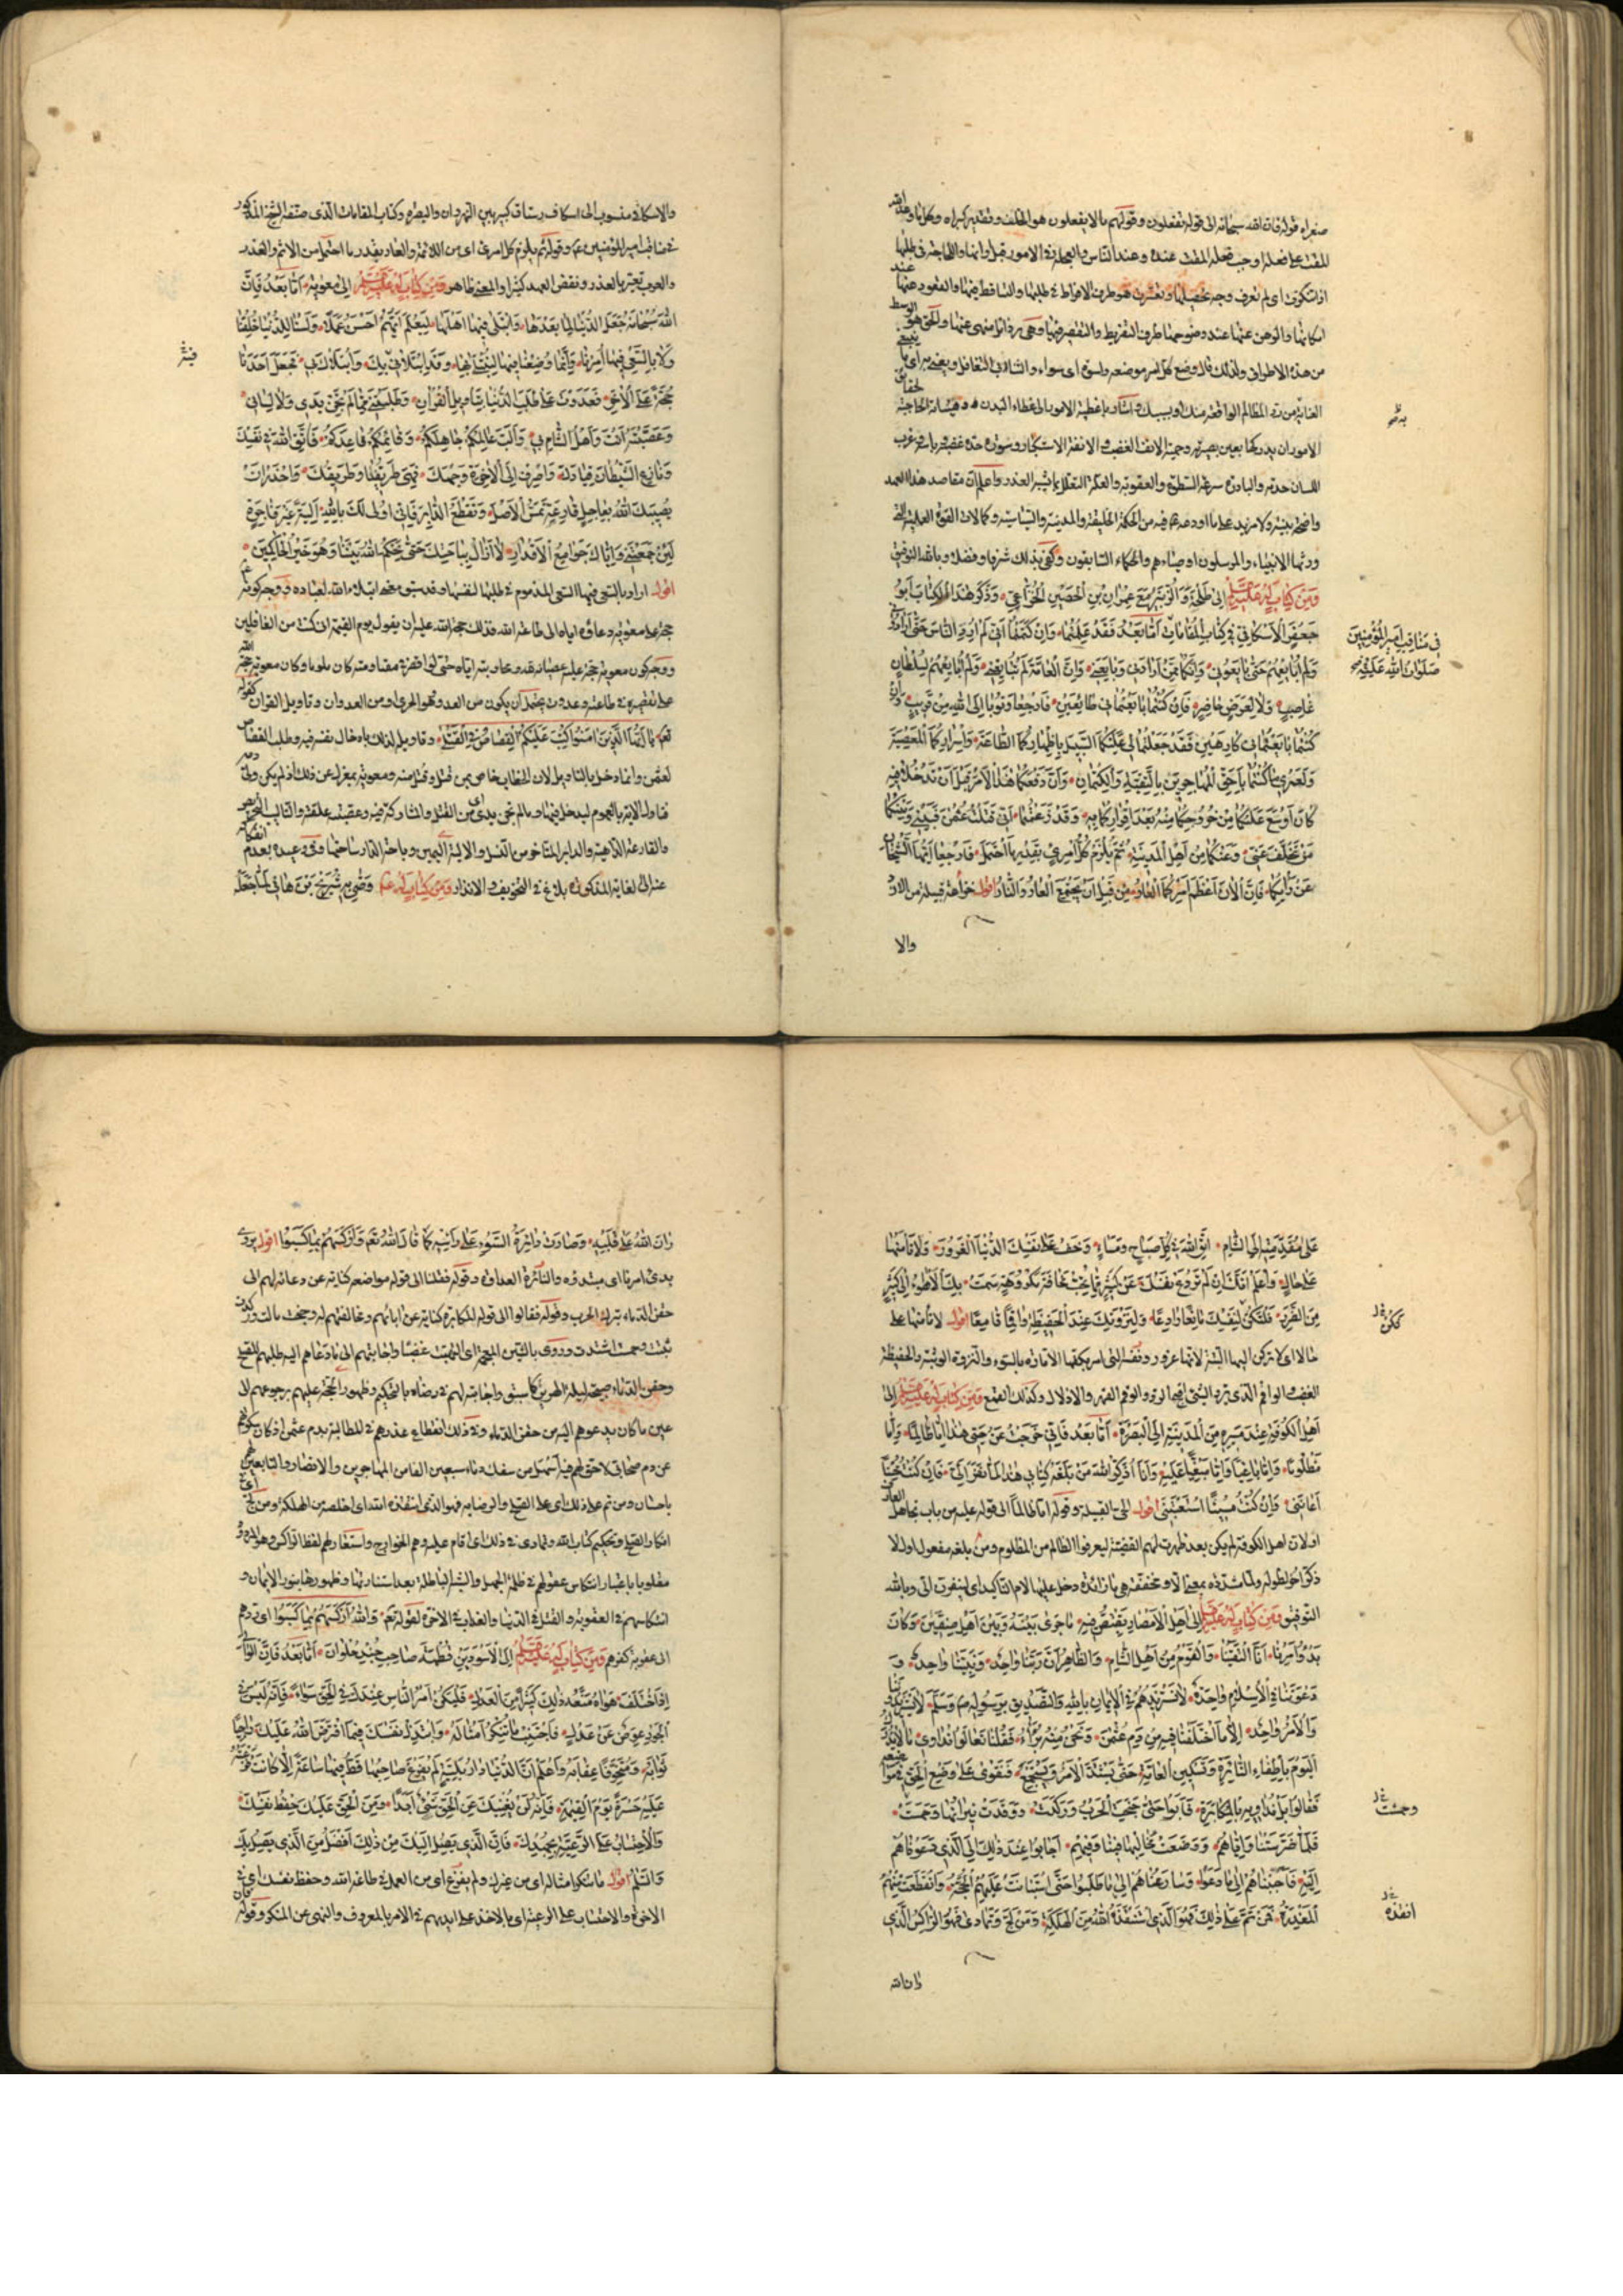 صغراه قوله فان الله سبحانه الى قوله تفعلون وقولهم ما لا يفعلون هو الخلف وتقدير كبراه وكل ما وعد الله
المقت على فعله اوجب فعله المقت عنده وعند الناس والعجلة فى الامور قبل اوانها واللجاجة فى طلبها
اذا تنكرت اى لم تعرف وجه تحصيلها وتعسرت هو طرف الافراط فى طلبها والتساقط فيها والقعود عنها عند
امكانها والوهن عنها عند وضوحها طرف التفريط والتقصير فيها وهى رذائل منهى عنها والحق هو الوسط
من هذه الاطراف ولذلك قال وضع كل امر موضعه واسوة اى سواء والتغابى التغافل ويعنى به اى ما ينبغى
العناية من رد المظالم الواقعة منك وبسببك واشار باغطية الامور الى غطاء البدن و هيئاته الحاجبة لحقائق
الامور ان يدركها بعين بصيرته وحمية الانف الغضب والانفة الاستكبار وسورة حده غضبه وباسه وغرب
اللسان حدته والبادرة سرعة السطوة والعقوبة والعلة التعلل واعلم ان مقاصد هذا العهد
واضحة بينة ولا مزيد على ما اودعه فيه من الحكمة الخلقية والمدنية والسياسية وكمالات القوة العملية التى
ورثها الانبياء والمرسلون اوصياءهم والحكماء السابقون وكفى بذلك شرفا وفضلا وبالله التوفيق
وَمِن كتابٍ لَهُ عَلَيْهِ السَّلَمُ اِلى طَلْحَةَ وَالزُّبَيْرِ مَعَ عِمْرَانِ بْنِ الْحَصَينِ الْخُزَاعِىِّ وَذَكَرَ هَذَا الْكِتَابَ اَبُو
جَعْفَرٍ الاَسْكَافِىّ فِى كِتَابِ المَقَامَاتِ اَمَّا بَعْدُ فَقَدْ عَلِمْتُمَا وَاِنْ كَتَمْتُمَا اَنِّى لَمْ اُرِدِ النَّاسَ حَتَّى اَرَادُونِى
وَلَمْ اُبَايِعْهُمْ حَتَّى بَايَعُونِى وَاِنَّكُمَا مِمَّنْ اَرَادَنِى وَبَايَعَنِى وَاِنَّ الْعَامَّةَ لَمْ تُبَايِعْنِى لِسُلْطَانٍ
غَاصِبٍ وَلَا لِعَرَضٍ حَاضِرٍ فَاِنْ كُنْتُمَا بَايَعْتُمَانِى طَائِعَيْنِ فَارْجِعَا وَتُوبَا اِلَى اللهِ مِنْ قَرِيبٍ وَاِنْ
كُنْتُمَا بَايَعْتُمَانِى كَارِهَيْنِ فَقَدْ جَعَلْتُمَا لِى عَلَيْكُمَا السَّبِيلَ بِاِظْهَارِكُمَا الطَّاعَةَ وَاِسْرَارِكُمَا الْمَعْصِيَةَ
وَلَعَمْرِى مَا كُنْتُمَا بِاَحَقِّ الْمُهَاجِرِينَ بِالتَّقِيَّةِ وَالْكِتْمَانِ وَاِنَّ دَفْعَكُمَا هَذَا الاَمْرَ قَبْلَ اَنْ تَدْخُلَا فِيهِ
كَانَ اَوْسَعَ عَلَيْكُمَا مِنْ خُرُوجِكُمَا مِنْهُ بَعْدَ اِقْرَارِكُمَا بِهِ وَقَدْ زَعَمْتُمَا اَنِّى قَتَلْتُ عُثْمٰنَ فَبَيْنِى وَبَيْنَكُمَا
مَنْ تَخَلَّفَ عَنِّى وَعَنْكُمَا مِنْ اَهْلِ الْمَدِينَةِ ثُمَّ يُلْزَمُ كُلُّ امْرِئٍ بِقَدْرِ مَا احْتَمَلَ فَارْجِعَا اَيُّهَا الشَّيْخَانِ
عَنْ رَاْيِكُمَا فَاِنَّ الآنَ اَعْظَمُ اَمْرِكُمَا الْعَارُ مِنْ قَبْلِ اَنْ يَجْتَمِعَ الْعَارُ وَالنَّارُ اقول خزاعة قبيلة من الازد
والا
به
فى مَنَاقِبِ اَميرِ المُؤْمِنِينَ
صَلَوَاتُ اللهِ عَلَيْهِ
والاسكافى منسوب الى اسكاف رستاق كبير بين النهروان والبصرة وكتاب المقامات الذى صنفه الشيخ المذكور
فى مناقب امير المؤمنين عم وقوله ثم يلزم كل امرئ اى من اللائمة والعار بقدر ما احتمل من الاثم والغدر
والعرب تعير بالغدر ونقض العهد كثيرا والمعنى ظاهر وَمِن كِتَابٍ لَهُ عَلَيْهِ السَّلَمُ اِلىٰ مُعوِيَةَ اَمَّا بَعْدُ فَاِنَّ
اللهَ سُبْحَانَهُ جَعَلَ الدُّنْيَا لِمَا بَعْدَهَا وَابْتَلَى فِيهَا اَهْلَهَا لِيَعْلَمَ اَيُّهُمْ اَحْسَنُ عَمَلًا وَلَسْنَا لِلدُّنْيَا خُلِقْنَا
وَلَا بِالسَّعْىِ فِيهَا اُمِرْنَا وَاِنَّمَا وُضِعْنَا فِيهَا لِنُبْتَلَى بِهَا وَقَدِ ابْتَلَانِى بِكَ وَابْتَلَاكَ بِى فَجَعَلَ اَحَدَنَا
حُجَّةً عَلَى الْآخَرِ فَعَدَوْتَ عَلَى طَلَبِ الدُّنْيَا بِتَاوِيلِ الْقُرْآنِ وَطَلَبْتَنِى بِمَا لَمْ تَجْنِ يَدِى وَلَا لِسَانِى
وَعَصَبْتَهُ اَنْتَ وَاَهْلُ الشَّامِ بِى وَاَلَّبَ عَالِمُكُمْ جَاهِلَكُمْ وَقَائِمُكُمْ قَاعِدَكُمْ فَاتَّقِ اللهَ فِى نَفْسِكَ
وَنَازِعِ الشَّيْطَانَ قِيَادَكَ وَاصْرِفْ اِلَى الْآخِرَةِ وَجْهَكَ فَهِىَ طَرِيقُنَا وَطَرِيقُكَ وَاحْذَرْ اَنْ
يُصِيبَكَ اللهُ بِعَاجِلِ قَارِعَةٍ تَمَسُّ الْاَصْلَ وَتَقْطَعُ الدَّابِرَ فَاِنِّى اُولِى لَكَ بِاللهِ اَلِيَّةً غَيْرَ فَاجِرَةٍ
لَئِنْ جَمَعَتْنِى وَاِيَّاكَ جَوَامِعُ الْاَقْدَارِ لَا اَزَالُ بِبَاحَتِكَ حَتَّى يَحْكُمَ اللهُ بَيْنَنَا وَهُوَ خَيْرُ الْحَاكِمِينَ
اقول اراد بالسعى فيها السعى المذموم فى طلبها لنفسها وقد سبق معنى ابتلاء الله لعباده ووجه كونه عم
حجة على معوية دعاؤه اياه الى طاعة الله فذلك حجة الله عليه ان يقول يوم القيمة ان كنت من الغافلين
ووجه كون معوية حجة عليه عصيانه له ومحاربته اياه حتى لو اقصر فى مقاومته كان ملوما وكان معوية حجة الله
على تقصيره فى طاعته وعدوت يحتمل ان يكون من العدو وهو الجرى او من العدوان وتاويل القران كقوله
تعم يَا اَيُّهَا الَّذِينَ امَنُوا كُتِبَ عَلَيْكُمُ الْقِصَاصُ فِى الْقَتْلَى وتاويله لذلك بادخال نفسه فيه وطلب القصاص
لعثمن وانما دخل بالتاويل لان الخطاب خاص بمن قتل وقتل منه ومعوية بمعزل عن ذلك اذ لم يكن ولى دمه
فتاول الاية بالعموم ليدخل فيها وما لم تجن يدى اى من القتل والمشاركة فيه وعصبته علقته والتاليب التحريص
والقارعة الداهية والدابر المتاخر من النسل والالية اليمين وباحة الدار ساحتها وفى وعيده بعدم انفكاكه
عنه الى الغاية المذكورة بلاغ فى التخويف والانذار ومن كتاب له عم وَصَّى بِهِ شُرَيْحَ بْنَ هَانِى لَمَّا جَعَلَهُ
عَلَى مُقَدِّمَتِهِ اِلَى الشَّامِ اِتَّقِ اللهَ فِى كُلِّ صَبَاحٍ وَمَسَاءٍ وَخَفْ عَلَى نَفْسِكَ الدُّنْيَا الْغَرُورَ وَلَا تَاْمَنْهَا
عَلَى حَالٍ وَاعْلَمْ اَنَّكَ اِنْ لَمْ تَرْدَعْ نَفْسَكَ عَنْ كَثِيرٍ مِمَّا تُحِبُّ مَخَافَةَ مَكْرُوهَةٍ سَمَتْ بِكَ الْاَهْوَاءُ اِلَى كَثِيرٍ
مِنَ الضَّرَرِ فَلْتَكُنْ لِنَفْسِكَ مَانِعًا رَادِعًا وَلِنَزْوَتِكَ عِنْدَ الْحَفِيظَةِ وَاقِمًا قَامِعًا اقول لا تأمنها على
حال اى لا تركن اليها البتة لانها غرور ونفسه التى امر بكفها الامارة بالسوء والنزوة الوثبة والحفيظة
الغضب والواقم الذى يرد الشئ اقبح الرد والوقم القهر والاذلال وكذلك القمع وَمِن كِتَابٍ لَهُ عَلَيْهِ السَّلَمُ اِلى
اَهْلِ الْكُوفَةِ عِنْدَ مَسِيرِهِ مِنَ الْمَدِينَةِ اِلَى الْبَصْرَةِ اَمَّا بَعْدُ فَاِنِّى خَرَجْتُ عَنْ حَيِّى هَذَا اِمَّا ظَالِمًا وَاِمَّا
مَظْلُومًا وَاِمَّا بَاغِيًا وَاِمَّا مَبْغِيًّا عَلَيْهِ وَاَنَا اُذَكِّرُ اللهَ مَنْ بَلَغَهُ كِتَابِى هَذَا لَمَّا نَفَرَ اِلَىَّ فَاِنْ كُنْتُ مُحْسِنًا
اَعَانَنِى وَاِنْ كُنْتُ مُسِيئًا اسْتَعْتَبَنِى اقول الحى القبيلة وقوله اما ظالما الى قوله عليه من باب تجاهل العارف
او لان اهل الكوفة لم يكن بعد ظهرت لهم القضية ليعرفوا الظالم من المظلوم ومن بلغه مفعول اول لا
ذكر ولما مشددة بمعنى الا ومخففة هى ما زائدة دخل عليها لام التاكيد اى لينفرن الى وبالله
التوفيق وَمِن كِتَابٍ لَهُ عَلَيْهِ السَّلَمُ اِلى اَهْلِ الْاَمْصَارِ يَقْتَصُّ فِيهِ مَا جَرَى بَيْنَهُ وَبَيْنَ اَهْلِ صِفِّينَ وَكَانَ
بَدْءُ اَمْرِنَا اَنَّا الْتَقَيْنَا وَالْقَوْمُ مِنْ اَهْلِ الشَّامِ وَالظَّاهِرُ اَنَّ رَبَّنَا وَاحِدٌ وَنَبِيَّنَا وَاحِدٌ وَ
دَعْوَتَنَا فِى الْاِسْلَامِ وَاحِدَةٌ لَا نَسْتَزِيدُهُمْ فِى الْاِيمَانِ بِاللهِ وَالتَّصْدِيقِ بِرَسُولِهِ وَلَا يَسْتَزِيدُونَنَا
وَالْاَمْرُ وَاحِدٌ اِلَّا مَا اخْتَلَفْنَا فِيهِ مِنْ دَمِ عُثْمٰنَ وَنَحْنُ مِنْهُ بُرَاءٌ فَقُلْنَا تَعَالَوْا نُدَاوِى مَا لَا يُدْرَكُ
الْيَوْمَ بِاِطْفَاءِ النَّائِرَةِ وَتَسْكِينِ الْعَامَّةِ حَتَّى يَشْتَدَّ الْاَمْرُ وَيَسْتَجْمِعَ فَنَقْوَى عَلَى وَضْعِ الْحَقِّ مَوَاضِعَهُ
فَقَالُوا بَلْ نُدَاوِيهِ بِالْمُكَابَرَةِ فَاَبَوْا حَتَّى جَنَحَتِ الْحَرْبُ وَرَكَدَتْ وَوَقَدَتْ نِيرَانُهَا وَحَمِسَتْ
فَلَمَّا ضَرَّسَتْنَا وَاِيَّاهُمْ وَوَضَعَتْ مَخَالِبَهَا فِينَا وَفِيهِمْ اَجَابُوا عِنْدَ ذٰلِكَ اِلَى الَّذِى دَعَوْنَاهُمْ
اِلَيْهِ فَاَجَبْنَاهُمْ اِلَى مَا دَعَوْا وَسَارَعْنَاهُمْ اِلَى مَا طَلَبُوا حَتَّى اسْتَبَانَتْ عَلَيْهِمُ الْحُجَّةُ وَانْقَطَعَتْ مِنْهُمُ
الْمَعْذِرَةُ فَمَنْ تَمَّ عَلَى ذٰلِكَ فَهُوَ الَّذِى اسْتَنْقَذَهُ اللهُ مِنَ الْهَلَكَةِ وَمَنْ لَجَّ وَتَمَادَى فَهُوَ الرَّاكِسُ الَّذِى
ران الله
وحمشت
انقذه
رَانَ اللهُ عَلَى قَلْبِهِ وَصَارَتْ دَائِرَةُ السَّوْءِ عَلَى رَاْسِهِ كَمَا قَالَ اللهُ تَعَم وَاللهُ اَرْكَسَهُمْ بِمَا كَسَبُوا اقول يروى
بدئ امرنا اى مبتدؤه والنائرة العداوة وقوله فقلنا الى قوله مواضعه كناية عن دعائه لهم الى
حقن الدماء بترك الحرب وقوله فقالوا الى قوله المكابرة كناية عن ابائهم ومخالفتهم له وجنحت مالت وركدت
ثبتت وحمست اشتدت وروى بالشين المعجمة اى التهبت غضبا واجابتهم الى ما دعاهم اليه طلبهم للصلح
وحقن الدماء صبيحة ليلة الهرير كما سبق واجابته لهم فى رضاه بالتحكيم وظهور الحجة عليهم برجوعهم الى
عين ما كان يدعوهم اليه من حقن الدماء وفى ذلك انقطاع عذرهم فى المطالبة بدم عثمن اذ كان سكوتهم
عن دم صحابى لا حق لهم فيه اسهل من سفك دماء سبعين الفا من المهاجرين والانصار والتابعين لهم
باحسان ومن تم على ذلك اى على الصلح والرضا به فهو الذى استنقذه الله اى خلصه من الهلكة ومن لج اى
انكار الصلح وتحكيم كتاب الله وتمادى فى ذلك اى اقام عليه وهم الخوارج واستعار لهم لفظ الراكس وهو المردود
مقلوبا باعتبار انتكاس عقولهم فى ظلمة الجهل والشبه الباطلة بعد استنارتها وظهورها بنور الايمان و
انتكاسهم فى العقوبة والقتل فى الدنيا والعذاب فى الاخرة لقوله تعم وَاللهُ اَرْكَسَهُمْ بِمَا كَسَبُوا اى ردهم
الى عقوبة كفرهم وَمِن كِتَابٍ لَهُ عَلَيْهِ السَّلَمُ اِلَى الْاَسْوَدِ بْنِ قُطْبَةَ صَاحِبِ جُنْدِ حُلْوَانَ اَمَّا بَعْدُ فَاِنَّ الْوَالِىَ
اِذَا اخْتَلَفَ هَوَاهُ مَنَعَهُ ذٰلِكَ كَثِيرًا مِنَ الْعَدْلِ فَلْيَكُنْ اَمْرُ النَّاسِ عِنْدَكَ فِى الْحَقِّ سَوَاءً فَاِنَّهُ لَيْسَ فِى
الْجَوْرِ عِوَضٌ عَنْ عَدْلٍ فَاجْتَنِبْ مَا تُنْكِرُ اَمْثَالَهُ وَابْتَذِلْ نَفْسَكَ فِيمَا افْتَرَضَ اللهُ عَلَيْكَ رَاجِيًا
ثَوَابَهُ وَمُتَخَوِّفًا عِقَابَهُ وَاعْلَمْ اَنَّ الدُّنْيَا دَارُ بَلِيَّةٍ لَمْ يَفْرُغْ صَاحِبُهَا قَطُّ فِيهَا سَاعَةً اِلَّا كَانَتْ فَرْغَتُهُ
عَلَيْهِ حَسْرَةً يَوْمَ الْقِيٰمَةِ فَاِنَّهُ لَنْ يُغْنِيَكَ عَنِ الْحَقِّ شَىْءٌ اَبَدًا وَمِنَ الْحَقِّ عَلَيْكَ حِفْظُ نَفْسِكَ
وَالْاِحْتِسَابُ عَلَى الرَّعِيَّةِ بِجُهْدِكَ فَاِنَّ الَّذِى يَصِلُ اِلَيْكَ مِنْ ذٰلِكَ اَفْضَلُ مِنَ الَّذِى يَصِلُ بِكَ
وَالسَّلَمُ اقول ما تنكر امثاله اى من غيرك ولم يفرغ اى من العمل فى طاعة الله وحفظ نفسك اى فى
الاخرة والاحتساب على الرعية اى بالاخذ على ايديهم فى الامر بالمعروف والنهى عن المنكر وقوله